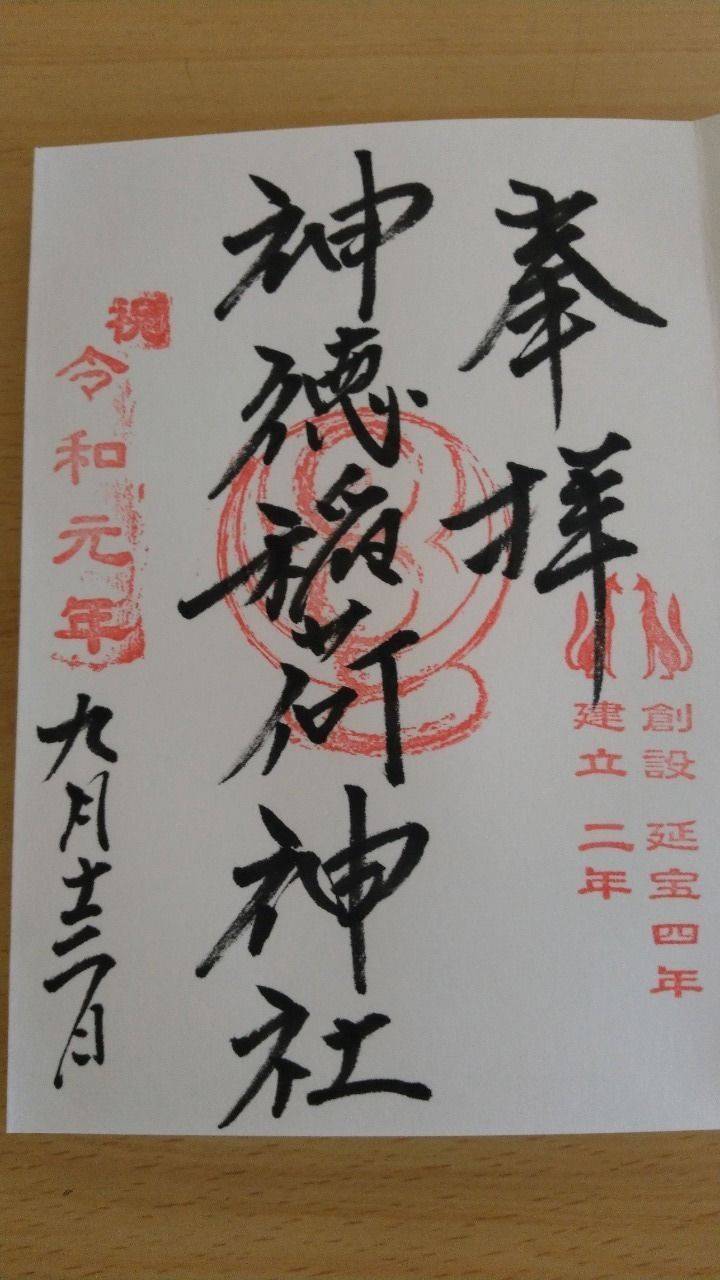 奉拝
創設 延宝四年
建立 二年
神徳稲荷神社
祝
令和元年
九月十二日